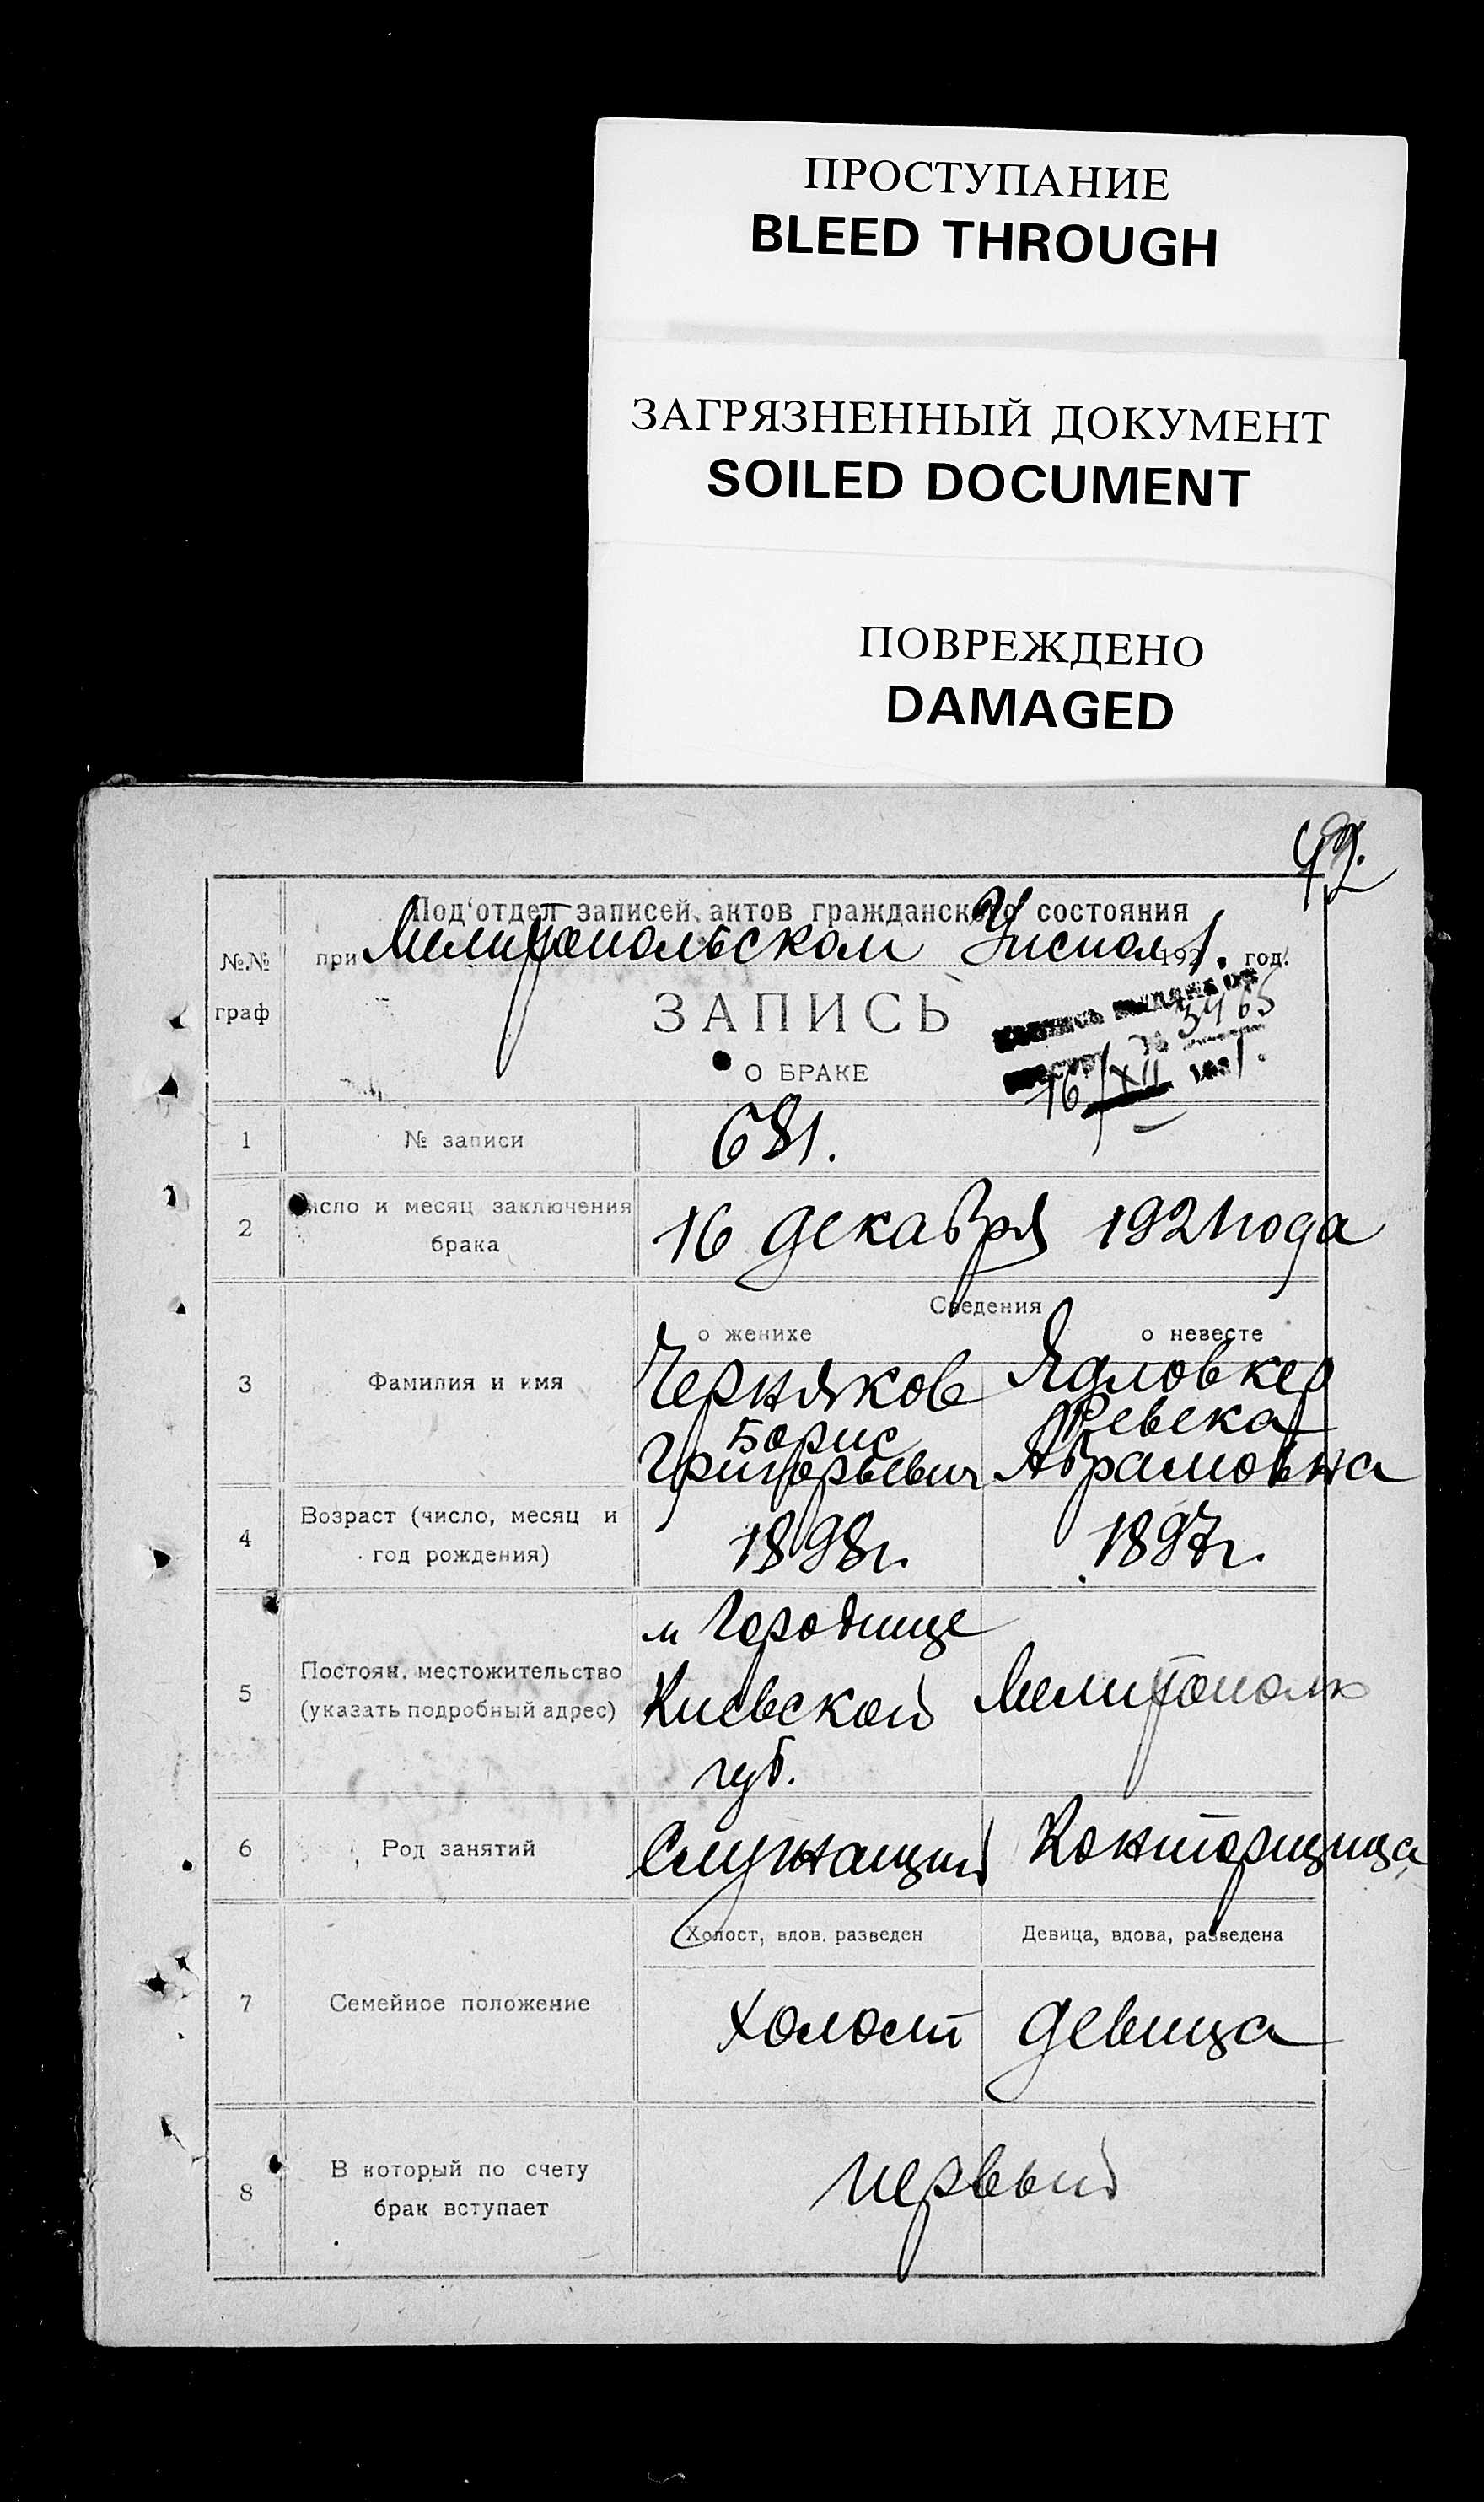 ПРОСТУПАНИЕ
BLEED THROUGH
ЗАГРЯЗНЕННЫЙ ДОКУМЕНТ
SOILED DOCUMENT
ПОВРЕЖДЕНО
DAMAGED
№№ граф
Под'отдел записей актов гражданского состояния
при Мелитопольском Уисполк 1921. год.
ЗАПИСЬ
О БРАКЕ
№ 3465
16/XII 1921.
1 № записи 681.
2 Число и месяц заключения брака 16 декабря 1921 года
Сведения
о женихе о невесте
3 Фамилия и имя Черняков Ядловкер
Борис Ревека
Григорьевич Абрамовна
4 Возраст (число, месяц и год рождения) 1898г. 1897г.
5 Постоян. местожительство (указать подробный адрес) м Городище Киевской губ. Мелитополь
6 Род занятий Служащий Конторщица
Холост, вдов. разведен Девица, вдова, разведена
7 Семейное положение холост девица
8 В который по счету брак вступает первый